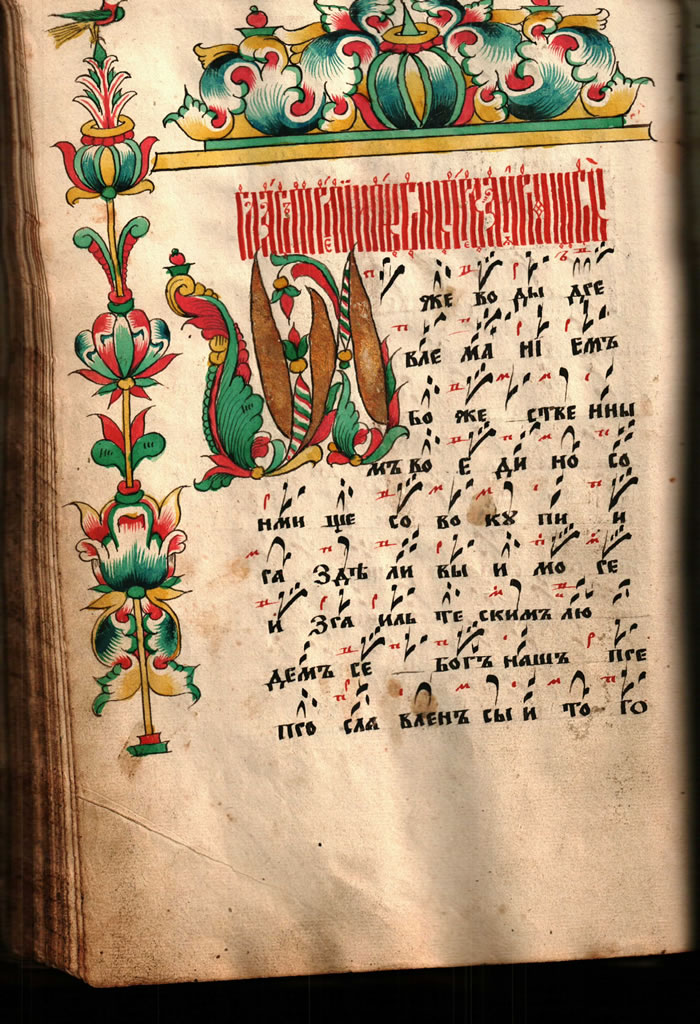 Иже во ды дре
вле ма ні емъ
бо же стве нны
мъ во е ди но со
нми ще со во ку пи и
га здѣ ли вы и мо ре
и зра иль те скимъ лю
демъ се богъ нашъ пре
про сла вленъ сы и то го